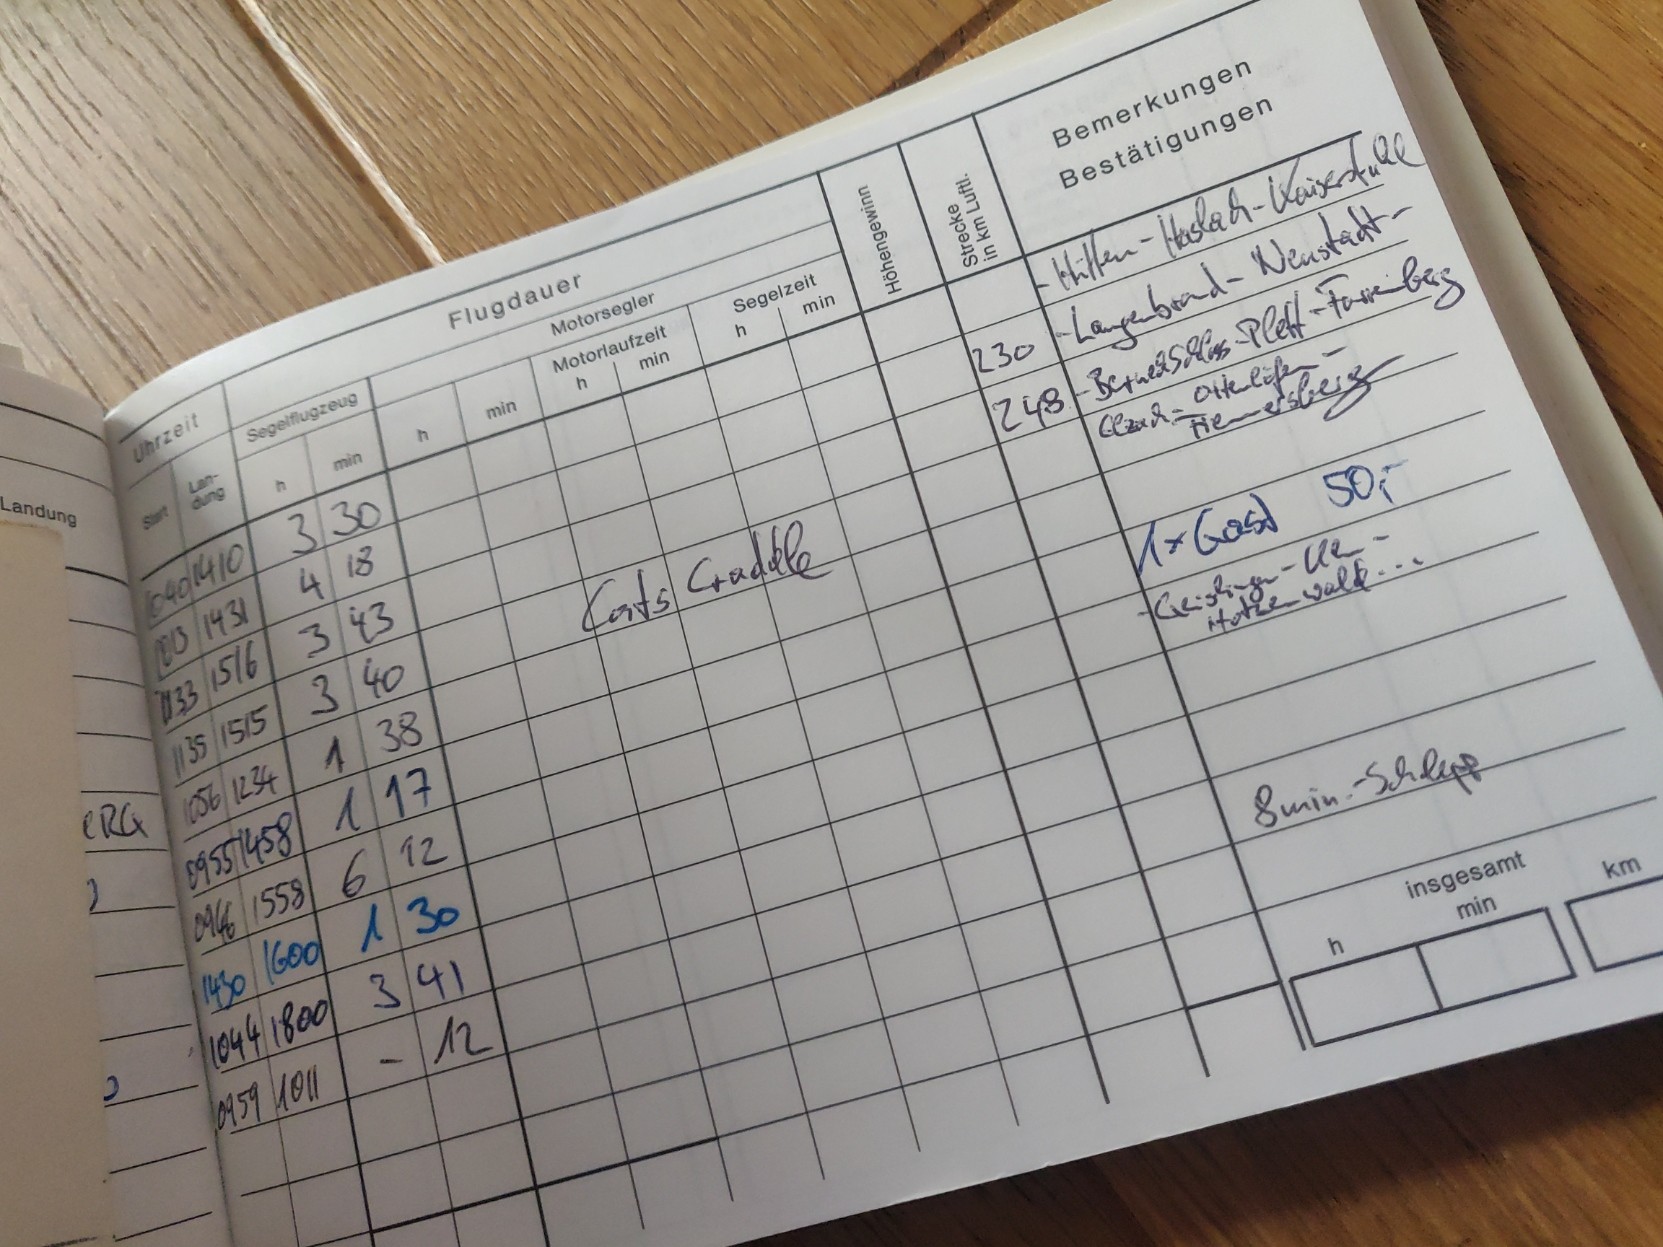 Landung
eRG
Uhrzeit
Start
Lan-
dung
Flugdauer
Segelflugzeug
h min
Motorsegler
h min
Motorlaufzeit
h min
Segelzeit
h min
Höhengewinn
Strecke
in km Luftl.
Bemerkungen
Bestätigungen
1040 1410 3 30
1013 1431 4 18
1133 1516 3 43
1135 1515 3 40
1056 1234 1 38
0955 1458 1 17
0946 1558 6 12
1430 1600 1 30
1044 1800 3 41
0959 1011 - 12
- Hütten - Haslach - Kaiserstuhl
230 - Langenbrand - Neustadt -
248 - Schloss - Plett - Farrenberg
1x Gast 50,-
- Geislingen - Ulm -
Hotzenwald...
8min.-Schlepp
insgesamt
h min
km